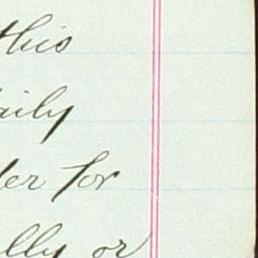 this
aily
er for
lly or